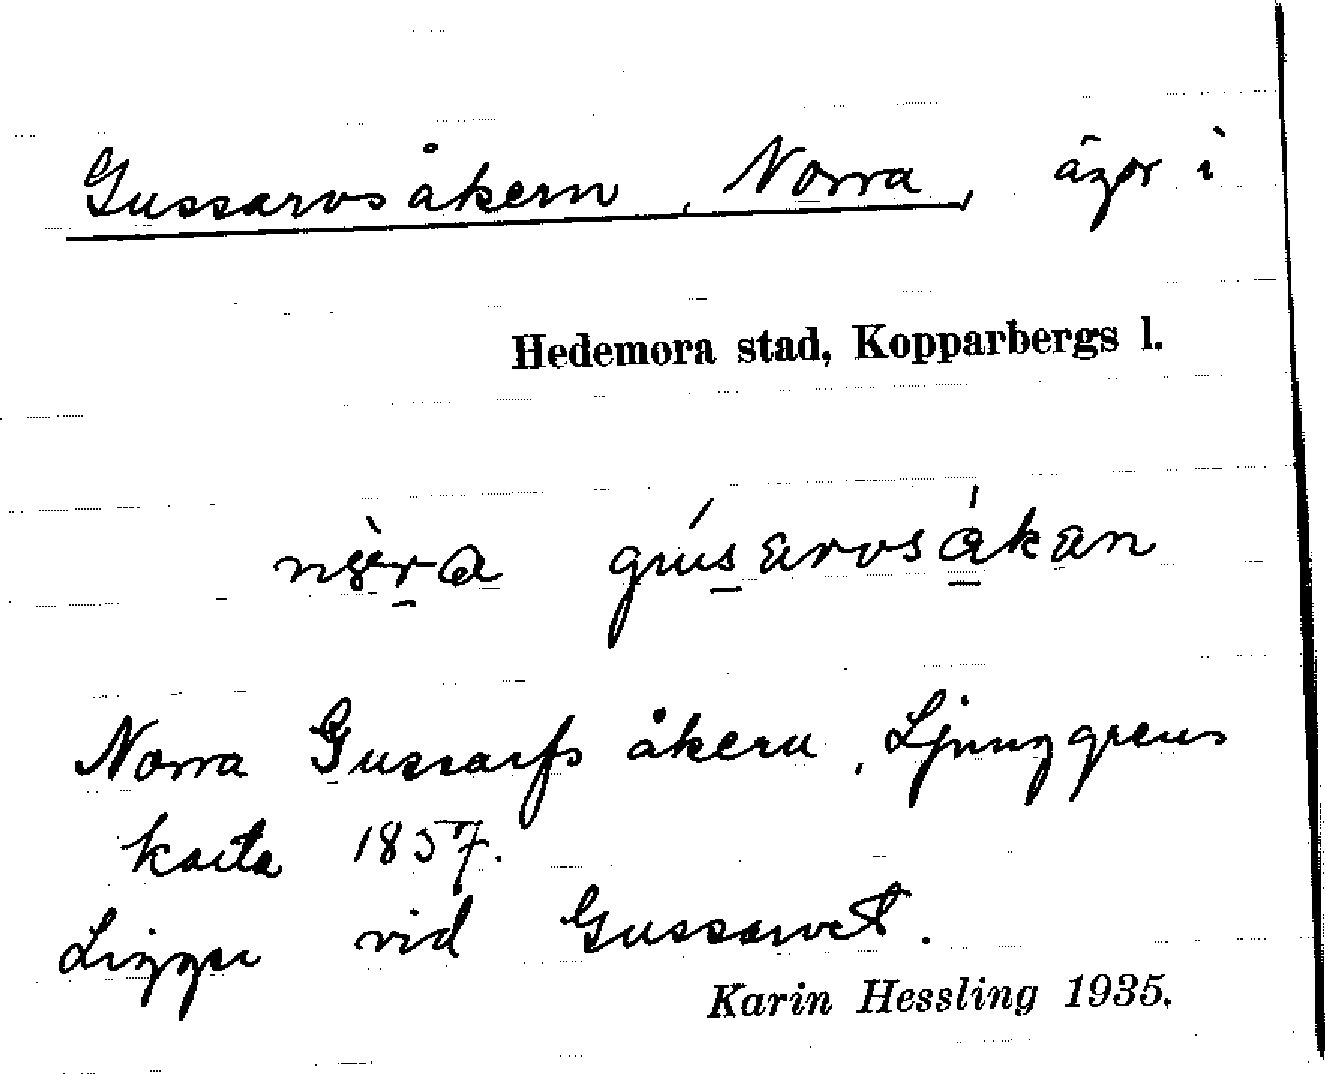 Gussarvsåkern, Norra, ägor i
Hedemora stad, Kopparbergs l.
Norra Gussarfs åkern, Ljunggrens
karta 1857.
Ligger vid Gussarvet.
Karin Hessling 1935.